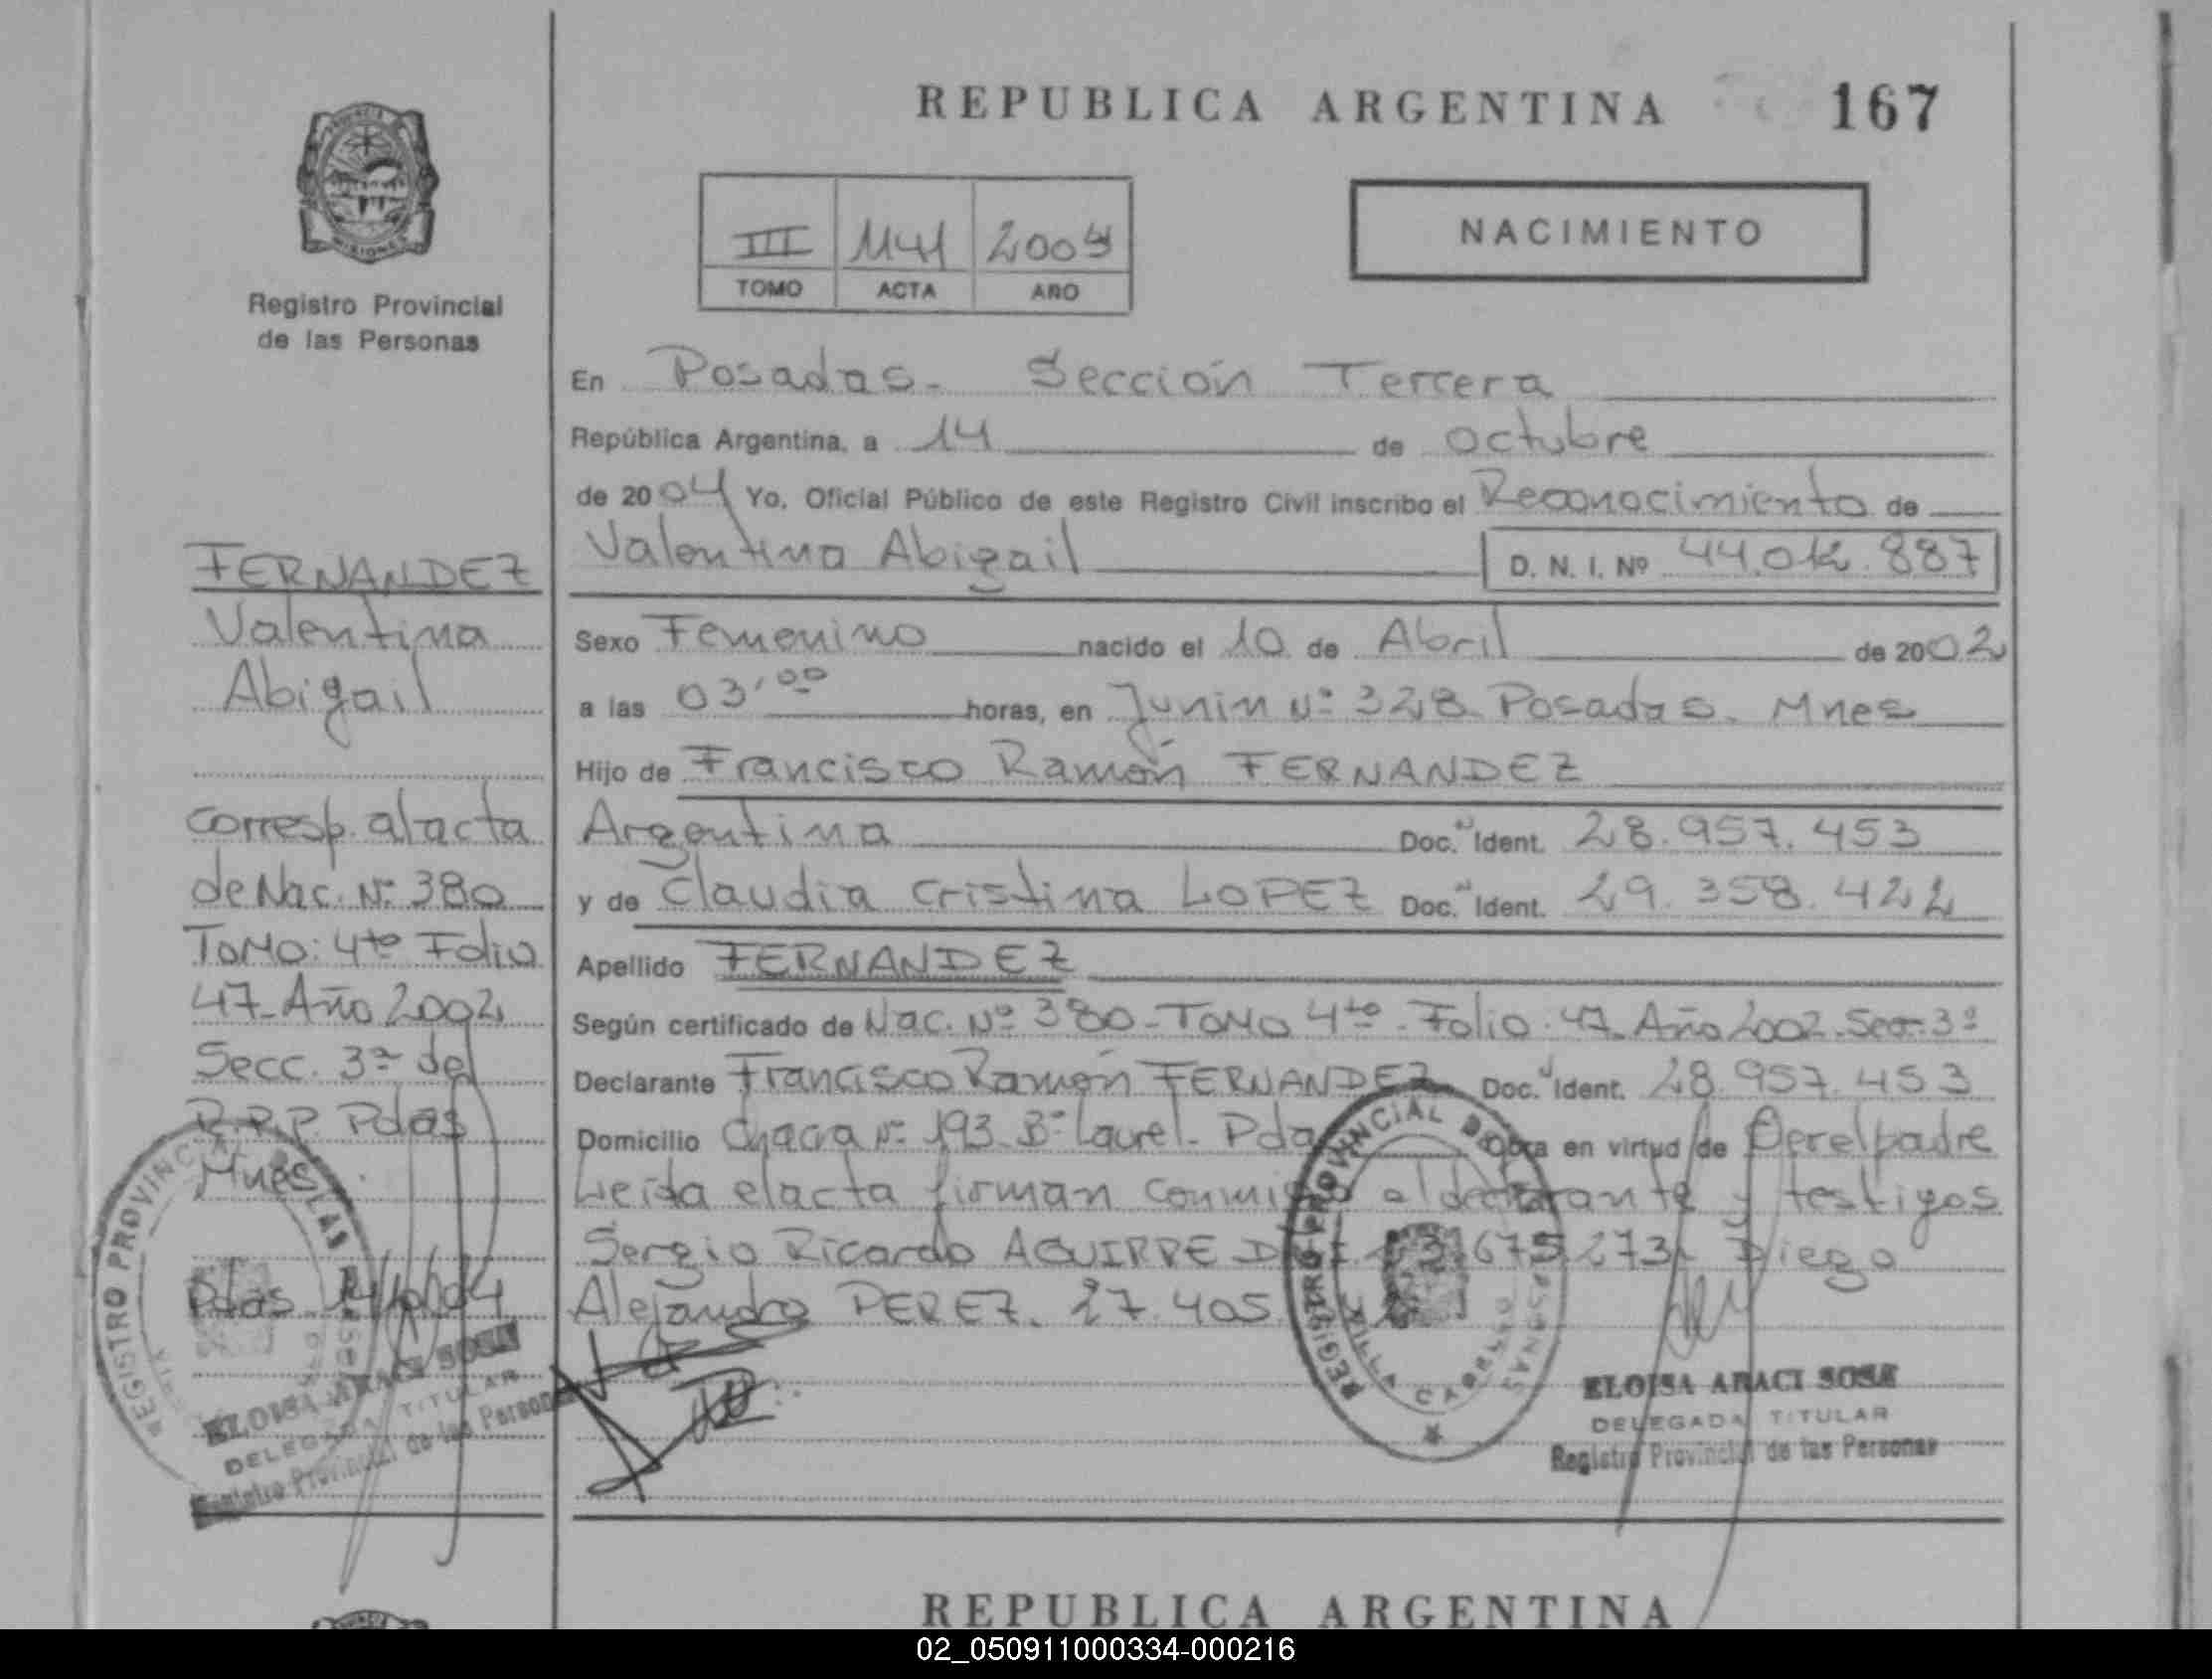 REPUBLICA ARGENTINA
167
NACIMIENTO
III 1141 2004
TOMO ACTA AÑO
Registro Provincial
de las Personas
FERNANDEZ
Valentina
Abigail
corresp. al acta
de Nac. Nº 380
TOMO: 4to Folio
47_Año 2002
Secc. 3ª del
R.P.P. Pdas
Mnes
Pdas 14/10/04
ELOISA ARACI SOSA
DELEGADA TITULAR
Registro Provincial de las Personas
En Posadas. Sección Tercera
República Argentina, a 14 de octubre
de 2004 Yo, Oficial Público de este Registro Civil inscribo el Reconocimiento de
Valentina Abigail D. N. I. Nº 44.012.887
Sexo Femenino nacido el 10 de Abril de 2002
a las 03,00 horas, en Junin Nº 328 Posadas. Mnes
Hijo de Francisco Ramón FERNANDEZ
Argentina Doc. Ident. 28.957.453
y de Claudia Cristina LOPEZ Doc. Ident. 29.358.422
Apellido FERNANDEZ
Según certificado de Nac. Nº 380-TOMO 4to. Folio. 47. Año 2002. Secc. 3ª
Declarante Francisco Ramón FERNANDEZ Doc. Ident. 28.957.453
Domicilio Chacra Nº 193 Bº Laurel. Pdas Obra en virtud de ser el padre
Leida el acta firman conmigo el declarante y testigos
Sergio Ricardo AGUIRRE 675.273 Diego
Alejandro PEREZ. 27.405.
REGISTRO PROVINCIAL DE LAS PERSONAS
VILLA CABELLO
ELOISA ARACI SOSA
DELEGADA TITULAR
Registro Provincial de las Personas
REPUBLICA ARGENTINA
02_050911000334-000216